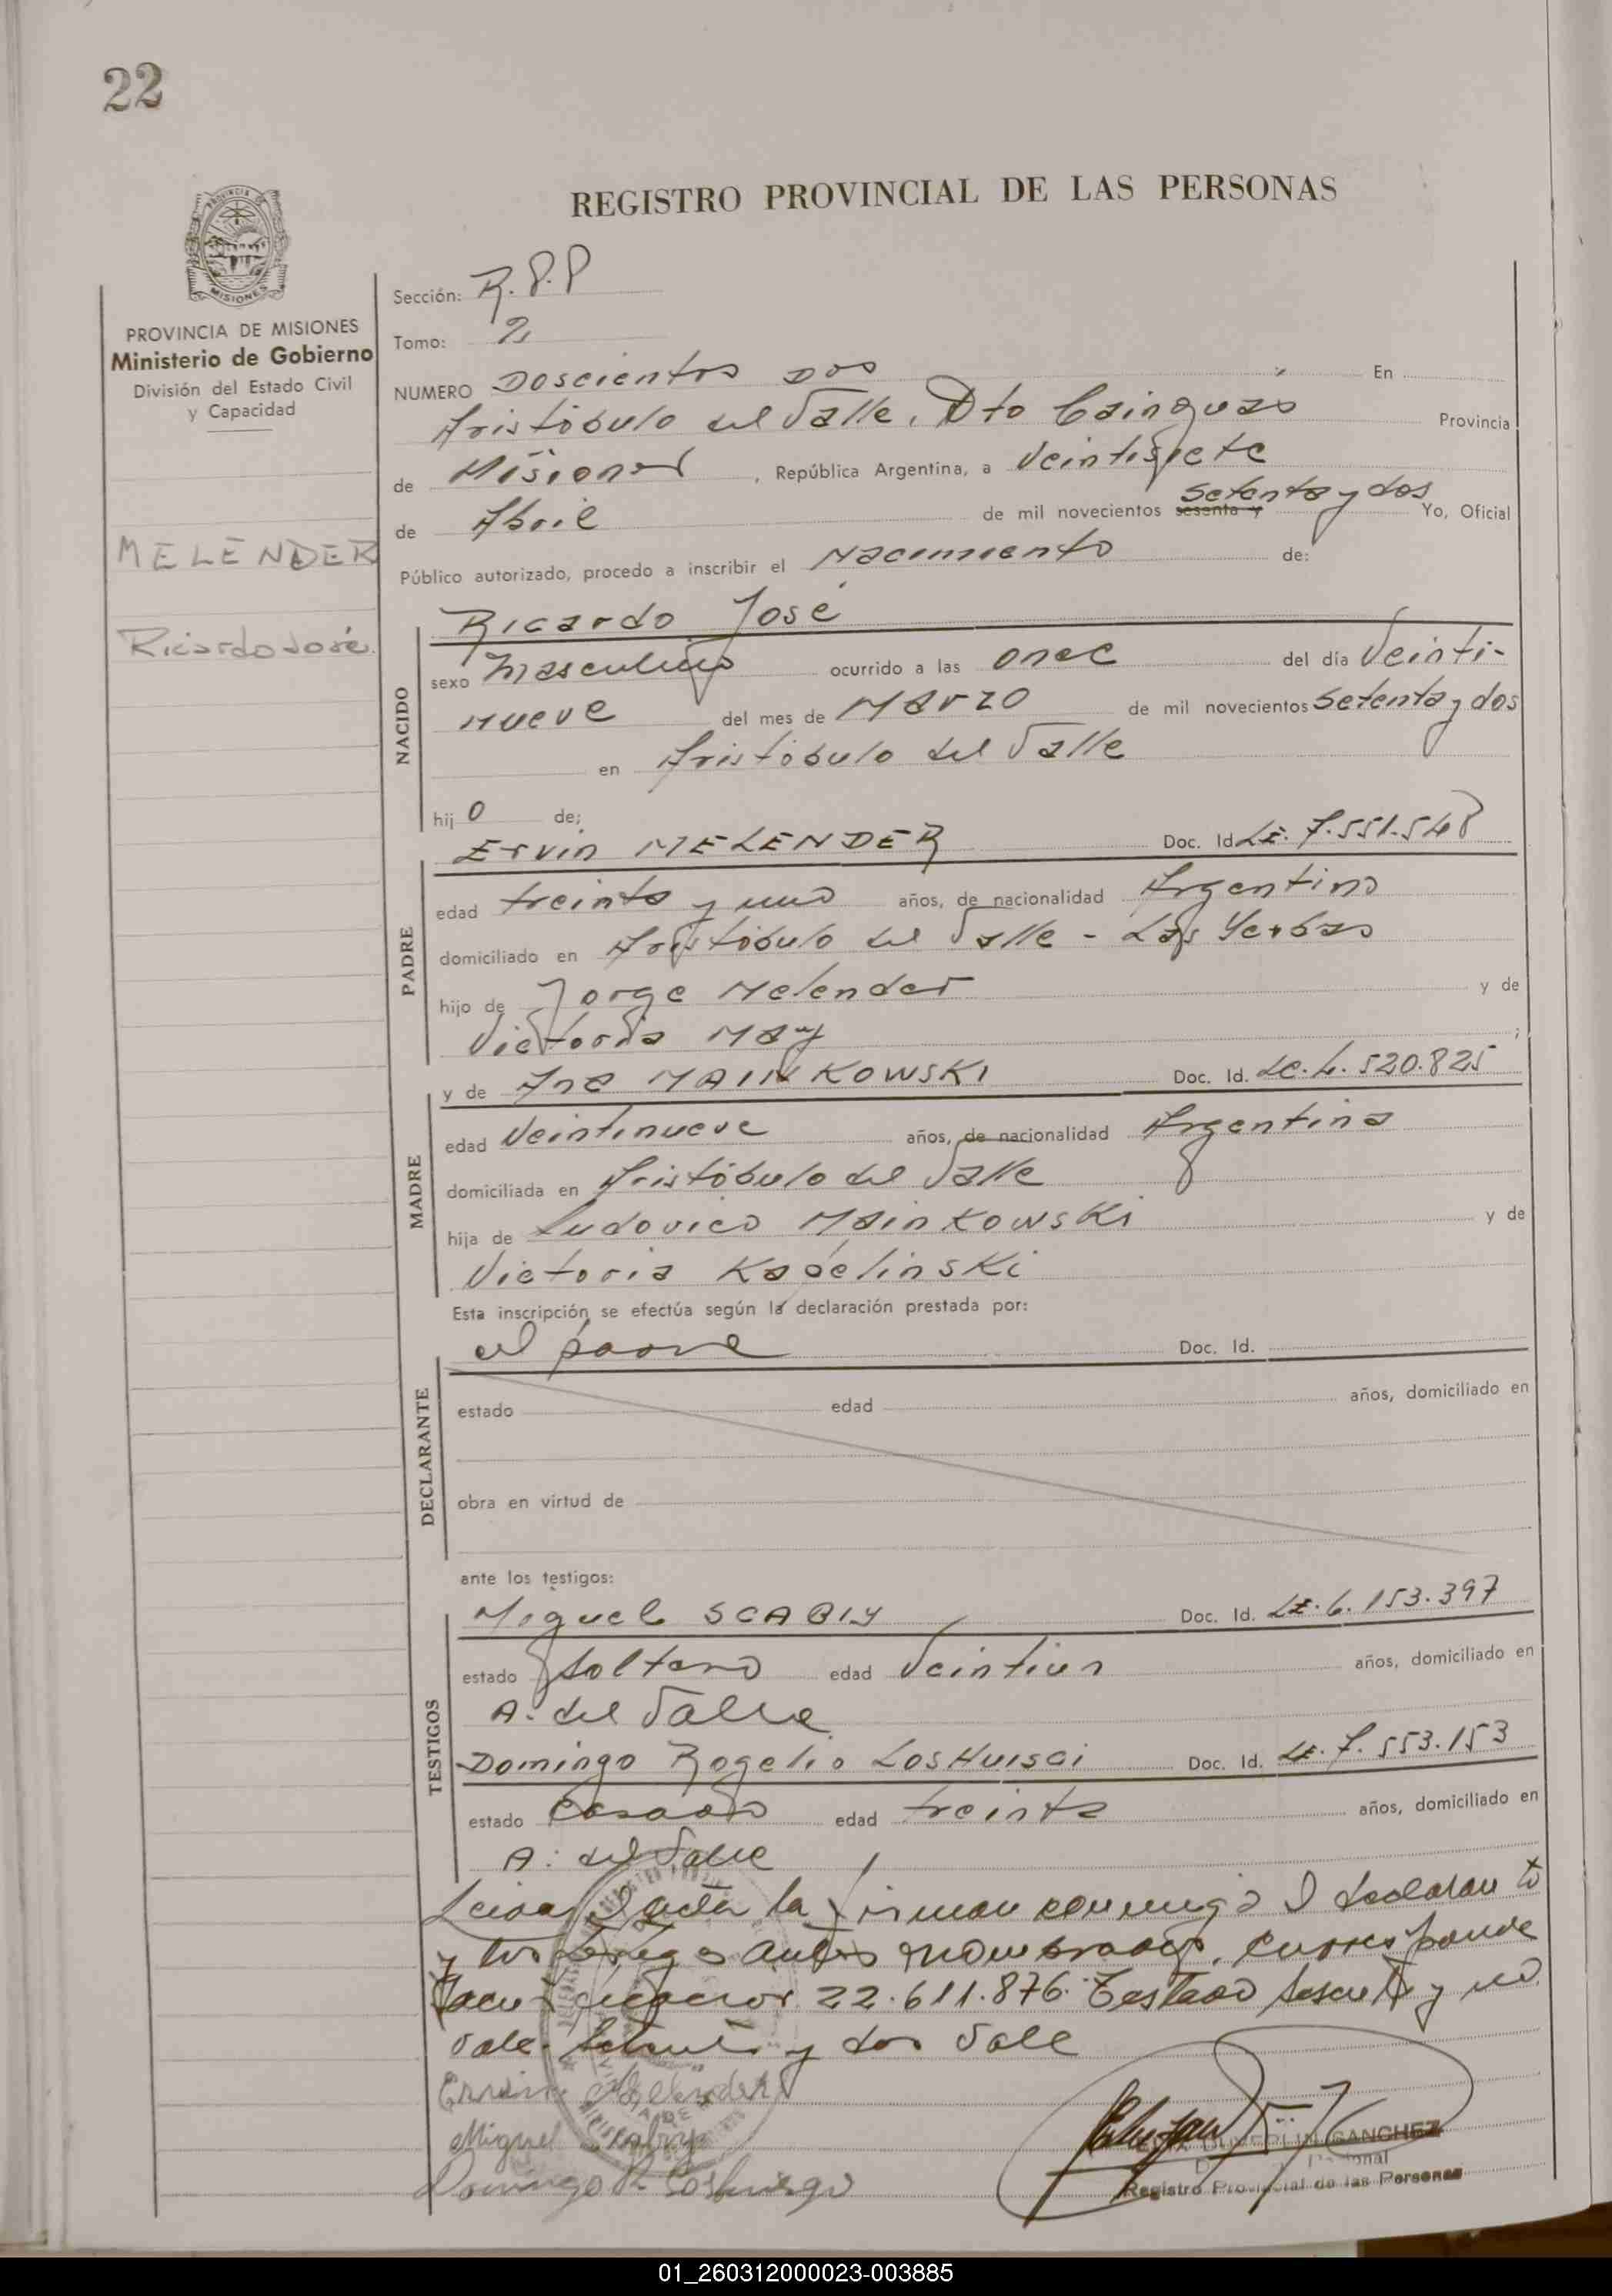 22
REGISTRO PROVINCIAL DE LAS PERSONAS
PROVINCIA DE MISIONES
Ministerio de Gobierno
División del Estado Civil
y Capacidad
MELENDER
Ricardo José.
Sección: R.P.P
Tomo: 2
NUMERO Doscientos Dos En
Aristóbulo del Valle, Dto Cainguas Provincia
de Misiones, República Argentina, a Veintisiete
de Abril de mil novecientos sesenta y setenta y dos Yo, Oficial
Público autorizado, procedo a inscribir el Nacimiento de:
NACIDO
Ricardo José
sexo Masculino ocurrido a las once del día Veinti-
nueve del mes de Marzo de mil novecientos setenta y dos
en Aristóbulo del Valle
hij o de;
PADRE
Ervin MELENDER Doc. Id LE. 7.551.548
edad treinta y uno años, de nacionalidad Argentino
domiciliado en Aristóbulo del Valle - Las Yerbas
hijo de Jorge Melender y de
Victoria May ;
MADRE
y de Ana MAINKOWSKI Doc. Id. LC. 4.520.825
edad Veintinueve años, de nacionalidad Argentina
domiciliada en Aristóbulo del Valle
hija de Ludovico Mainkowski y de
Victoria Kapelinski
Esta inscripción se efectúa según la declaración prestada por:
DECLARANTE
el padre Doc. Id.
estado edad años, domiciliado en
obra en virtud de
ante los testigos:
TESTIGOS
Miguel SCABIY Doc. Id. LE. 6.153.397
estado soltero edad Veintiun años, domiciliado en
A. del Valle
Domingo Rogelio Doc. Id. LE. 7.553.153
estado Casado edad treinta años, domiciliado en
A. del Valle
Leida el acta la firman conmigo el declarante
y los testigos antes nombrados. Corresponde
22.611.876. Testado sesenta y no
vale. Setenta y dos Vale
Ervin Melender
Miguel
Domingo R.
SANCHEZ
Registro Provincial de las Personas
01_260312000023-003885